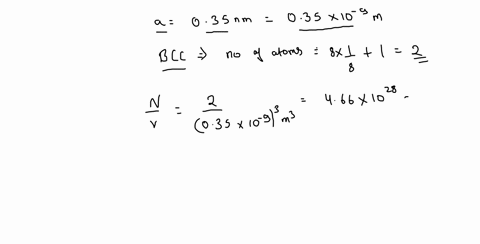 a = 0.35 nm = 0.35 × 10⁻⁹ m
BCC ⇒ no of atoms = 8 × 1/8 + 1 = 2
N/V = 2/(0.35 × 10⁻⁹)³ m³ = 4.66 × 10²⁸ -